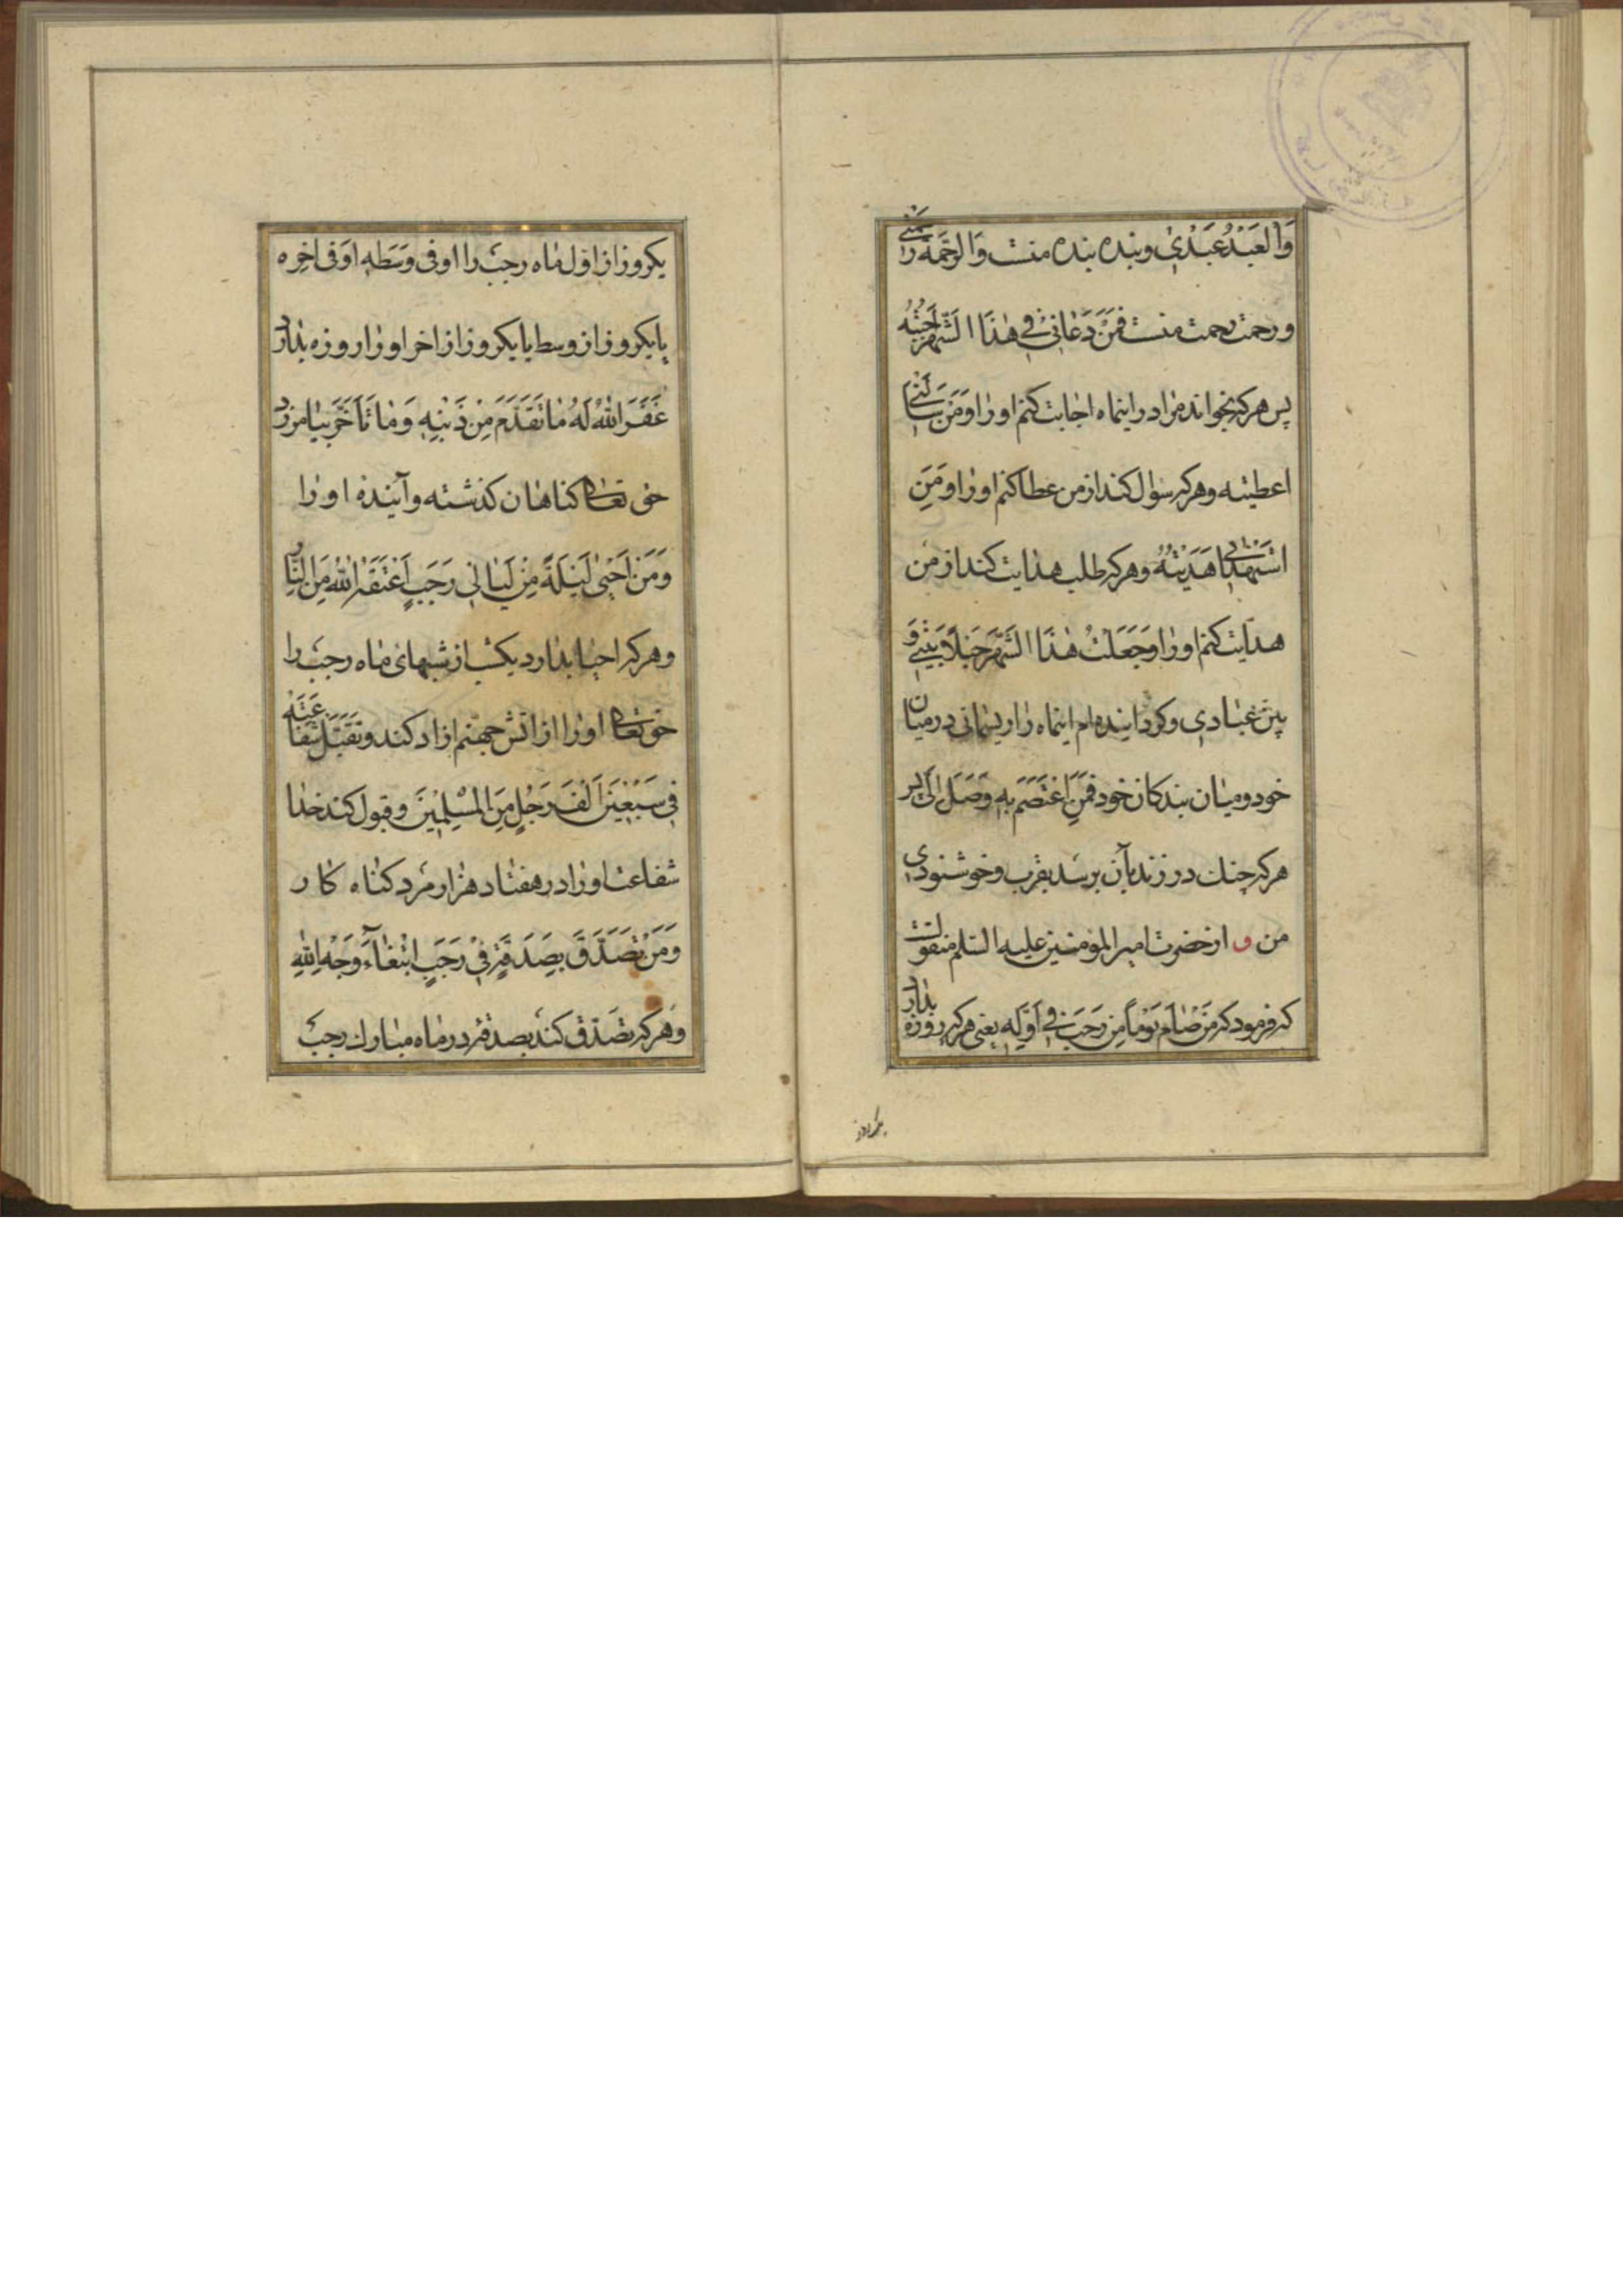 وَالْعَبْدُ عَبْدِي وبنده بنده منست وَالرَّحْمَةُ رَحْمَتِي
ورحمت رحمت منست فَمَنْ دَعَانِي فِي هٰذَا الشَّهْرِ اَجَبْتُهُ
پس هر که بخواند مرا در اینماه اجابت کنم او را وَمَنْ سَأَلَنِي
اعطیته وهر که سؤال کند از من عطا کنم او را وَمَنِ
اسْتَهْدَانِي هَدَيْتُهُ وهر که طلب هدایت کند از من
هدایت کنم او را وَجَعَلْتُ هٰذَا الشَّهْرَ حَبْلًا بَيْنِي وَ
بَيْنَ عِبَادِي وکردانیده ام اینماه را ریسمانی در میان
خود ومیان بندکان خود فَمَنِ اعْتَصَمَ بِهِ وَصَلَ اِلَيَّ پس
هر که چنك در زند بآن برسد بقرب وخوشنودی
من و از حضرت امیر المؤمنین علیه السلم منقولست
که فرمود که مَنْ صَامَ يَوْمًا مِنْ رَجَبَ فِي اَوَّلِهِ یعنی هر که روزه بدارد
یکروز
یکروز از اول ماه رجب را اَوْ فِي وَسَطِهِ اَوْ فِي اخِرِه
یا یکروز از وسط یا یکروز از اخر او را روزه بدارد
غَفَرَ اللّٰهُ لَهُ مَا تَقَدَّمَ مِنْ ذَنْبِهِ وَمَا تَأَخَّرَ بیامرزد
حق تعالی کناهان کذشته وآینده او را
وَمَنْ اَحْيٰى لَيْلَةً مِنْ لَيَالِي رَجَبٍ اَعْتَقَهُ اللّٰهُ مِنَ النَّارِ
وهر که احیا بدارد یکشب از شبهای ماه رجب را
حق تعالی او را از اتش جهنم ازاد کند وَتَقَبَّلَ شَفَاعَتَهُ
فِي سَبْعِينَ اَلْفَ رَجُلٍ مِنَ الْمُسْلِمِينَ وقبول کند خدا
شفاعت او را در هفتاد هزار مرد کناه کار
وَمَنْ تَصَدَّقَ بِصَدَقَةٍ فِي رَجَبٍ ابْتِغَاءَ وَجْهِ اللّٰهِ
وهر که تصدق کند بصدقه در ماه مبارك رجب